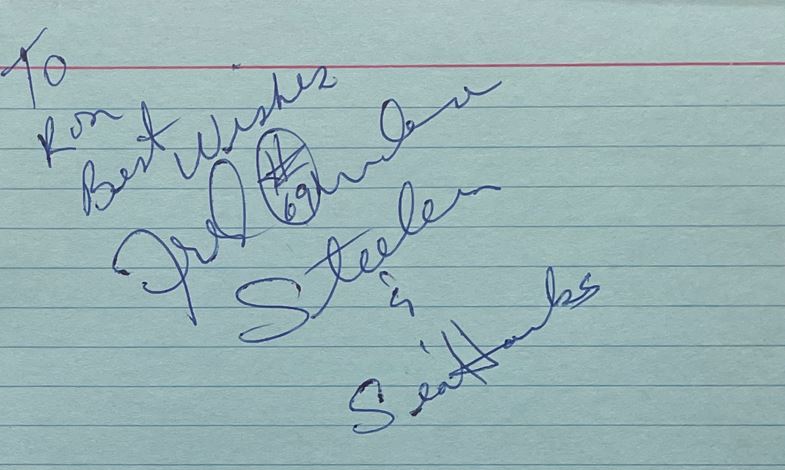 To
Ron
Best Wishes
Fred Anderson
#69
Steelers
&
SeaHawks